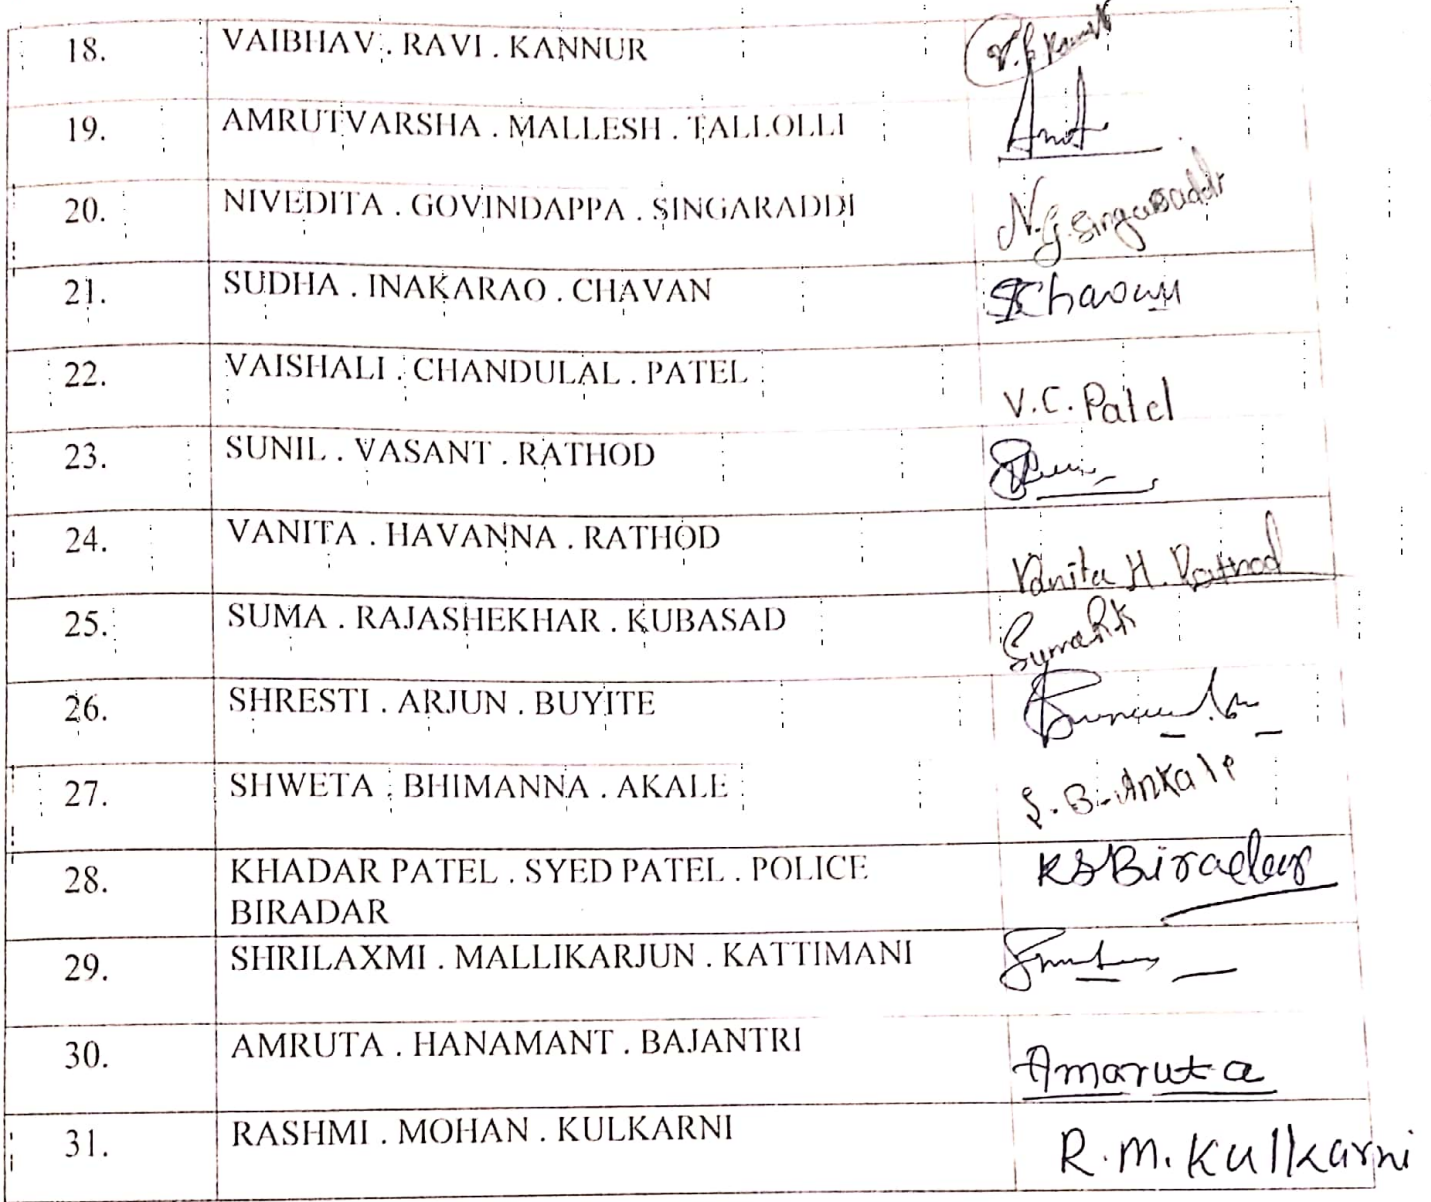 18. VAIBHAV . RAVI . KANNUR
19. AMRUTVARSHA . MALLESH . TALLOLLI
20. NIVEDITA . GOVINDAPPA . SINGARADDI N.G.Singaraddi
21. SUDHA . INAKARAO . CHAVAN SChavan
22. VAISHALI . CHANDULAL . PATEL V.C. Patel
23. SUNIL . VASANT . RATHOD
24. VANITA . HAVANNA . RATHOD Vanita H. Rathod
25. SUMA . RAJASHEKHAR . KUBASAD
26. SHRESTI . ARJUN . BUYITE
27. SHWETA . BHIMANNA . AKALE S.B.Ankale
28. KHADAR PATEL . SYED PATEL . POLICE KSBiradar
BIRADAR
29. SHRILAXMI . MALLIKARJUN . KATTIMANI
30. AMRUTA . HANAMANT . BAJANTRI Amaruta
31. RASHMI . MOHAN . KULKARNI R.M.Kulkarni